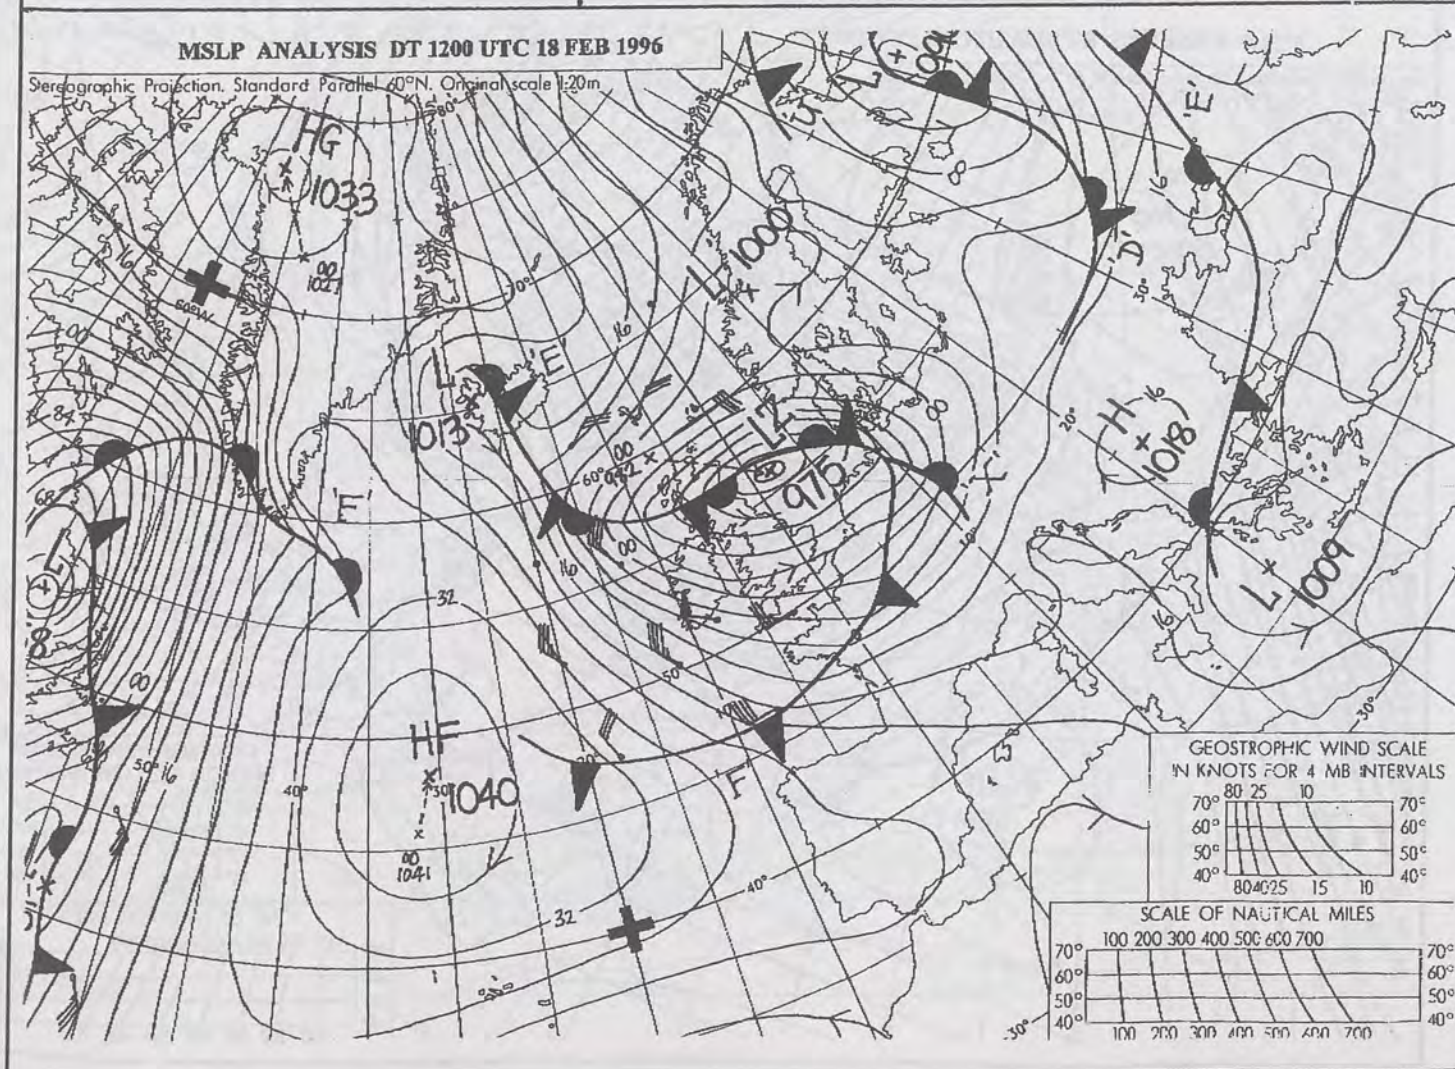 MSLP ANALYSIS DT 1200 UTC 18 FEB 1996
Stereographic Projection. Standard Parallel 60°N. Original scale 1:20m
HG
1033
00
1027
16
60°W
L
1013
'E'
16
L
1000
'E'
'D'
30°
20°
H
1018
16
16
L
1009
16
30°
LZ
975
00
60°
00
16
10°
32
'F'
L
8
00
50°
16
HF
1040
30°
00
1041
40°
32
50°
'F'
40°
30°
GEOSTROPHIC WIND SCALE
IN KNOTS FOR 4 MB INTERVALS
80 25 10
70° 70°
60° 60°
50° 50°
40° 40°
80 40 25 15 10
SCALE OF NAUTICAL MILES
100 200 300 400 500 600 700
70° 70°
60° 60°
50° 50°
40° 40°
100 200 300 400 500 600 700